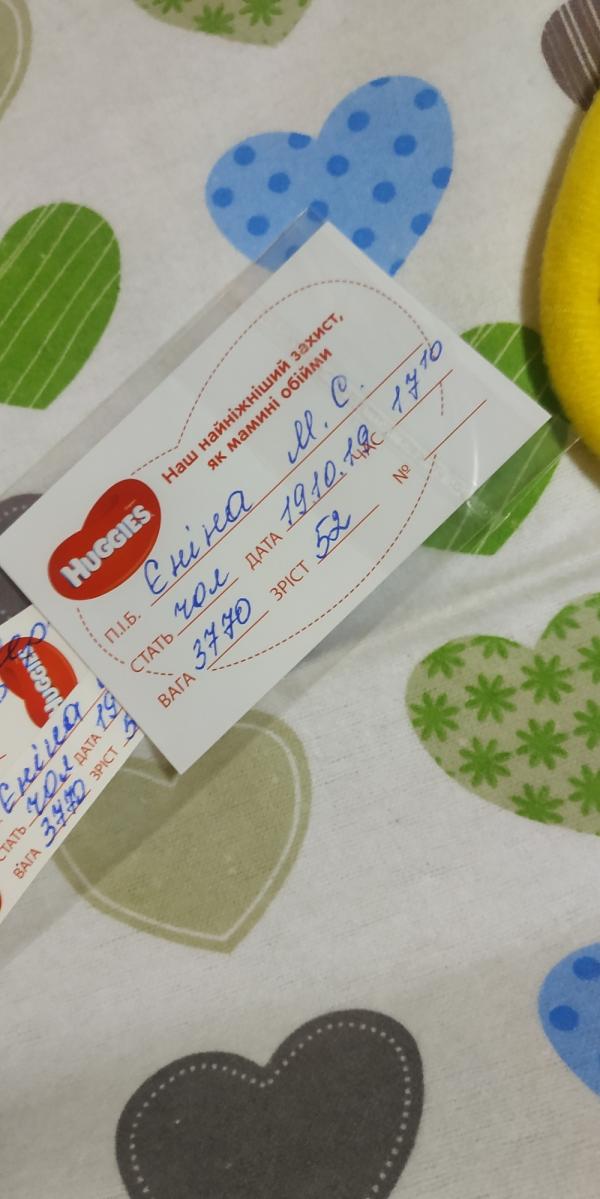 Наш найніжніший захист,
як мамині обійми
HUGGIES
П.І.Б. Єніна М. С.
СТАТЬ чол ДАТА 19.10.19 ЧАС 17 10
ВАГА 3770 ЗРІСТ 52 №
HUGGIES
Єніна
СТАТЬ чол ДАТА 19
ВАГА 3770 ЗРІСТ 5